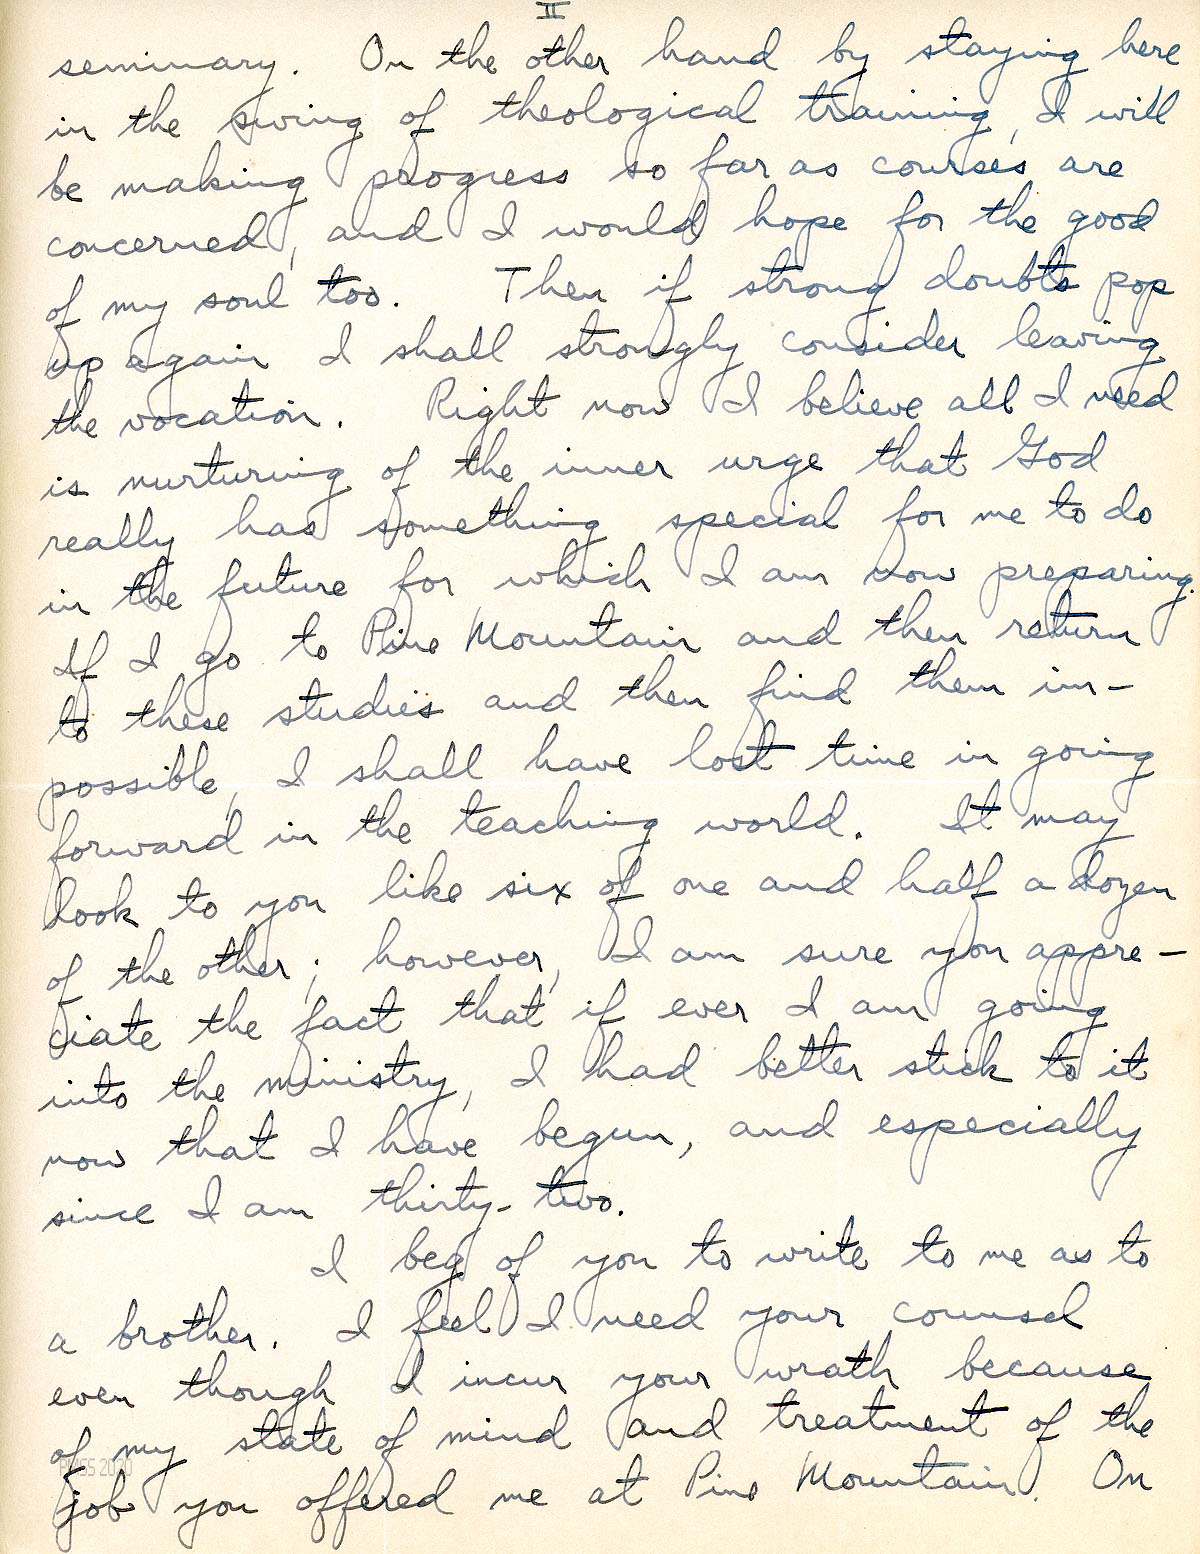 II
seminary. On the other hand by staying here
in the swing of theological training, I will
be making progress so far as courses are
concerned, and I would hope for the good
of my soul too. Then if strong doubts pop
up again I shall strongly consider leaving
the vocation. Right now I believe all I need
is nurturing of the inner urge that God
really has something special for me to do
in the future for which I am now preparing.
If I go to Pine Mountain and then return
to these studies and then find them im-
possible, I shall have lost time in going
forward in the teaching world. It may
look to you like six of one and half a dozen
of the other; however, I am sure you appre-
ciate the fact that if ever I am going
into the ministry, I had better stick to it
now that I have begun, and especially
since I am thirty-two.
I beg of you to write to me as to
a brother. I feel I need your counsel
even though I incur your wrath because
of my state of mind and treatment of the
PMSS 2020
job you offered me at Pine Mountain. On